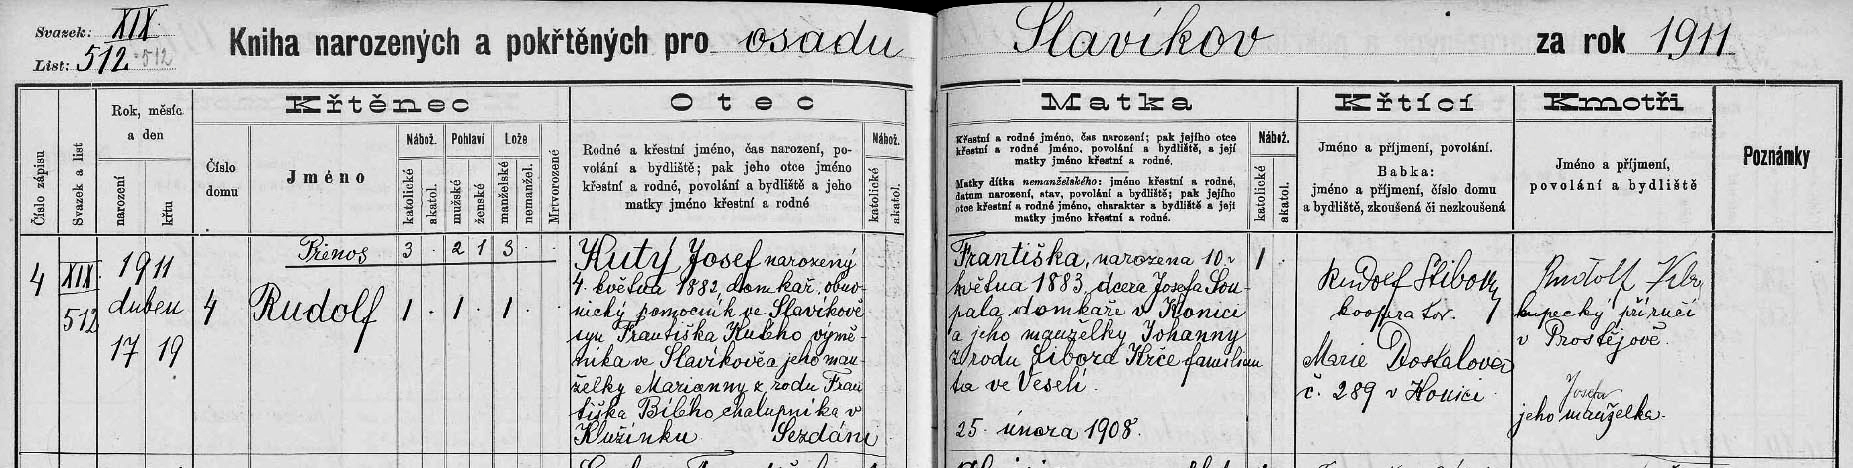 Svazek: XIX
List: 512 512
Kniha narozených a pokřtěných pro osadu Slavíkov za rok 1911
Číslo zápisu
Svazek a list
Rok, měsíc
a den
narození
křtu
Číslo
domu
Křtěnec
Jméno
Nábož.
katolické
akatol.
Pohlaví
mužské
ženské
Lože
manželské
nemanžel.
Mrtvorozené
Otec
Rodné a křestní jméno, čas narození, po-
volání a bydliště; pak jeho otce jméno
křestní a rodné, povolání a bydliště a jeho
matky jméno křestní a rodné
Nábož.
katolické
akatol.
Matka
Křestní a rodné jméno, čas narození; pak jejího otce
křestní a rodné jméno, povolání a bydliště, a její
matky jméno křestní a rodné.
Matky dítka nemanželského: jméno křestní a rodné,
datum narození, stav, povolání a bydliště; pak jejího
otce křestní a rodné jméno, charakter a bydliště a její
matky jméno křestní a rodné.
Nábož.
katolické
akatol.
Křtící
Jméno a příjmení, povolání.
Babka:
jméno a příjmení, číslo domu
a bydliště, zkoušená či nezkoušená
Kmotři
Jméno a příjmení,
povolání a bydliště
Poznámky
Přenos 3 . 2 1 3 .
4
XIX
512
1911
duben
17 19
4
Rudolf 1 . 1 . 1 .
Kutý Josef narozený
4. května 1882, domkař, obuv-
nický pomocník ve Slavíkově
syn Františka Kutého výmě-
níka ve Slavíkově a jeho man-
želky Marianny z rodu Fran
tiška Bílého chalupníka v
Klužínku Sezdáni
Františka, narozena 10.
května 1883, dcera Josefa Sou-
pala domkaře v Konici
a jeho manželky Johanny
z rodu Libora Krče familian
ta ve Veselí.
25. února 1908.
1 .
Rudolf Stibor
kooperator.
Marie Dostalova
č. 289 v Konici
Rudolf
kupecký příručí
v Prostějově.
Josefa
jeho manželka.